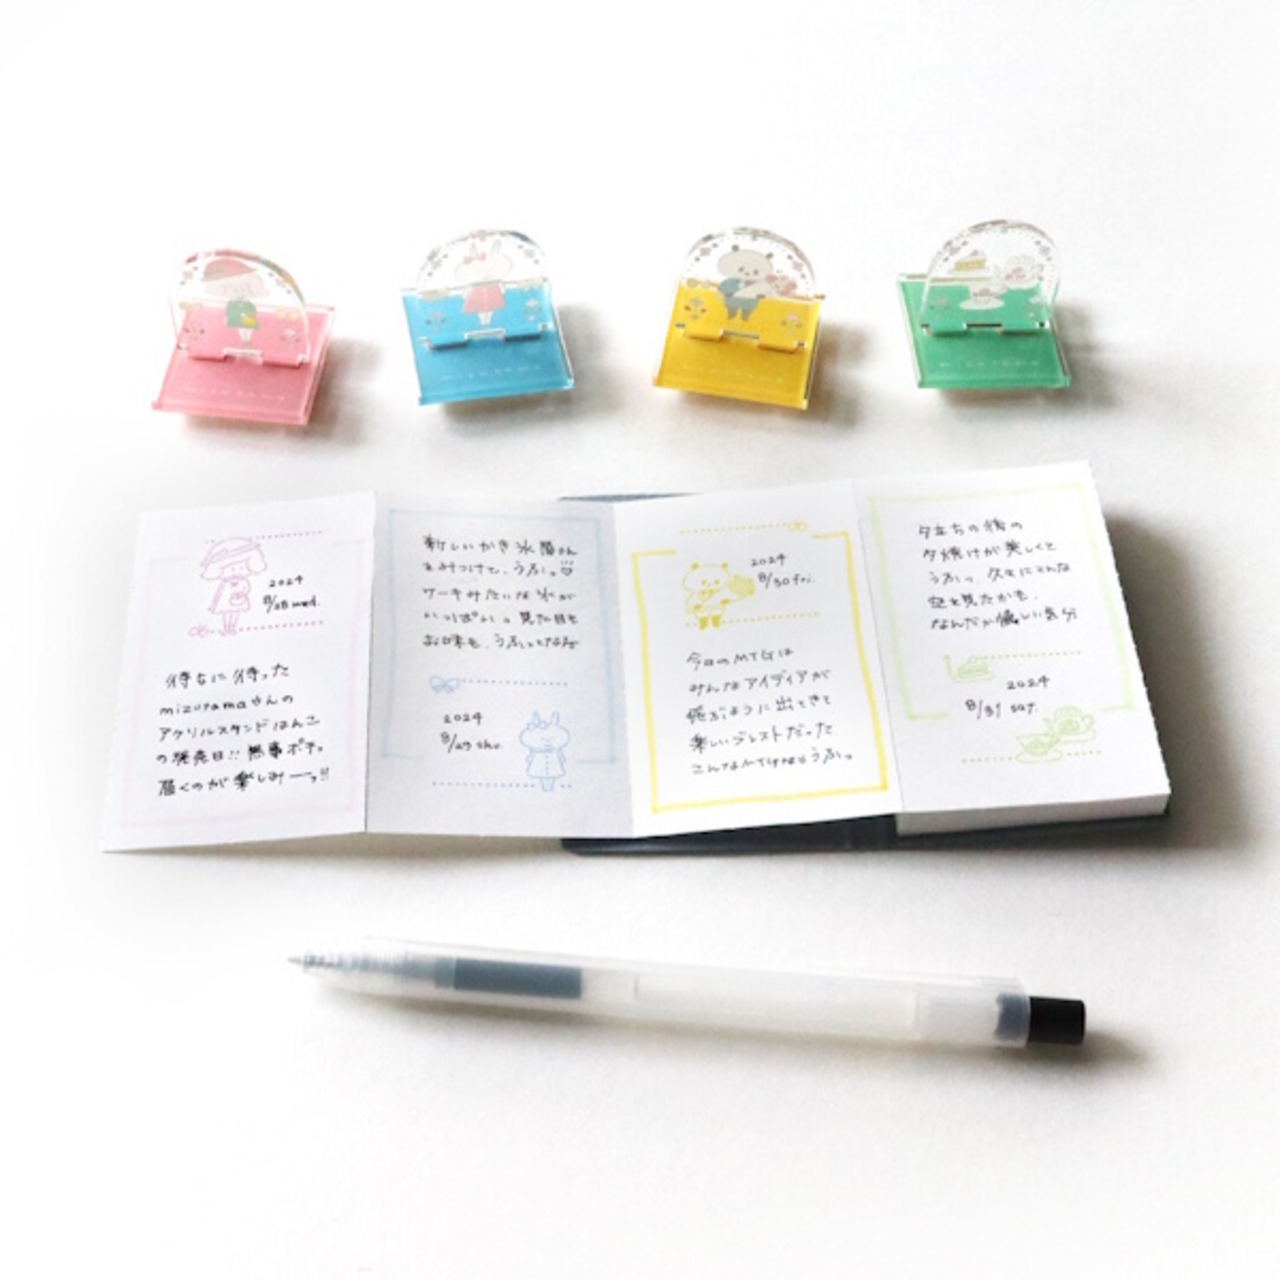 mizutama
mizutama
mizutama
mizutama
2024
8/28 wed.
待ちに待った
mizutamaさんの
アクリルスタンドはんこ
の発売日!! 無事ポチッ
届くのが楽しみーっ!!
新しいかき氷屋さん
をみつけて、うふっ♡
ケーキみたいな氷が
いっぱいっ 見た目も
お味も、うふっとなる
2024
8/29 thu.
2024
8/30 fri.
今日のMTGは
みんなアイディアが
飛ぶように出てきて
楽しいブレストだった
こんなMTGならうふっ
夕立ちの後の
夕焼けが美しくて
うふっ、久々にこんな
空を見たかも、
なんだか嬉しい気分
2024
8/31 sat.